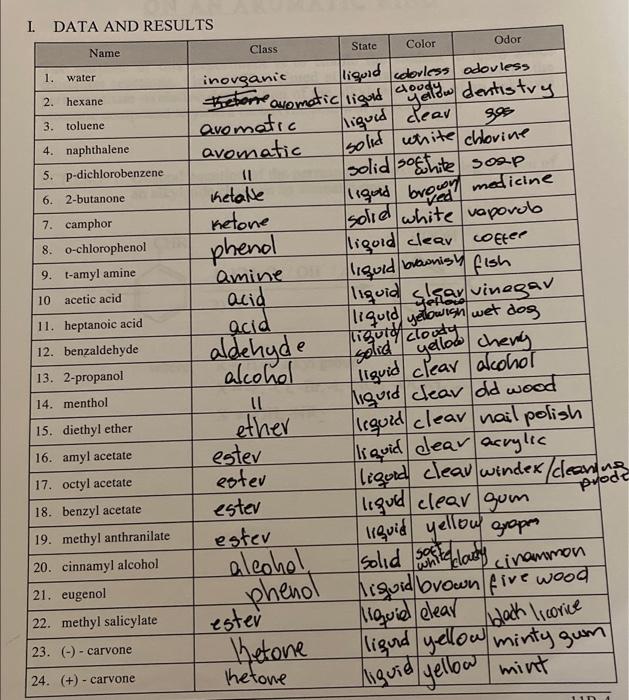 I. DATA AND RESULTS
Name Class State Color Odor
1. water inorganic liquid odorless odorless
2. hexane aromatic liquid cloudy yellow dentistry
3. toluene aromatic liquid clear gas
4. naphthalene aromatic solid white chlorine
5. p-dichlorobenzene 11 solid soft white soap
6. 2-butanone liquid brown red medicine
7. camphor ketone solid white vaporub
8. o-chlorophenol phenol liquid clear coffee
9. t-amyl amine amine liquid brownish fish
10 acetic acid acid liquid clear vinegar
11. heptanoic acid acid liquid yellow yellowish wet dog
12. benzaldehyde aldehyde liquid/ solid cloudy yellow cherry
13. 2-propanol alcohol liquid clear alcohol
14. menthol 11 liquid clear old wood
15. diethyl ether ether liquid clear nail polish
16. amyl acetate ester liquid clear acrylic
17. octyl acetate ester liquid clear windex/cleaning
18. benzyl acetate ester liquid clear gum
19. methyl anthranilate ester liquid yellow grapes
20. cinnamyl alcohol alcohol solid soft white cloudy cinammon
21. eugenol phenol liquid brown fire wood
22. methyl salicylate ester liquid clear black licorice
23. (-) - carvone Ketone liquid yellow minty gum
24. (+) - carvone Ketone liquid yellow mint